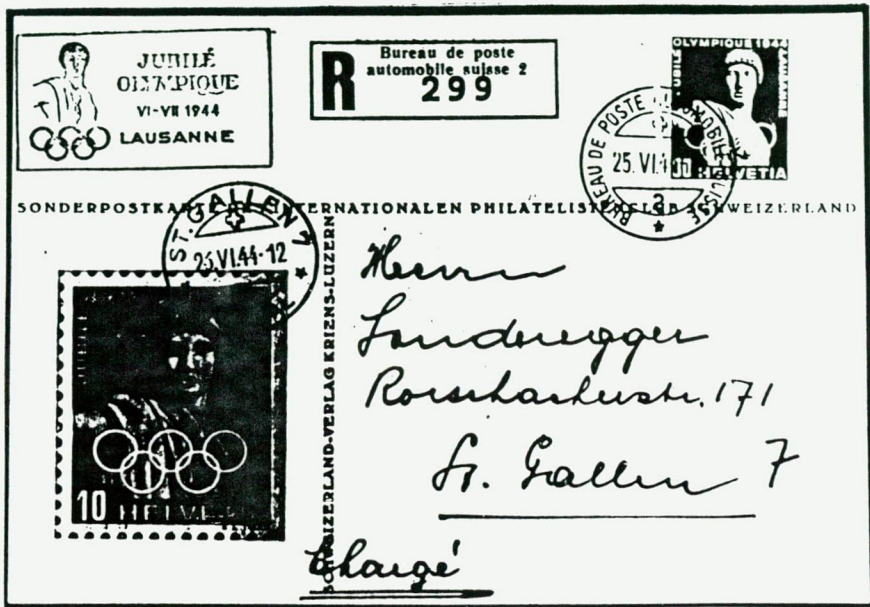 JUBILÉ
OLYMPIQUE
VI-VII 1944
LAUSANNE
R
Bureau de poste
automobile suisse 2
299
JUBILÉ OLYMPIQUE 1944
HELVETIA
BUREAU DE POSTE AUTOMOBILE SUISSE
25.VI.44
2
SONDERPOSTKARTE INTERNATIONALEN PHILATELISTEN CLUB SCHWEIZERLAND
ST. GALLEN 7
VI.44-12
SCHWEIZERLAND-VERLAG KRIENS-LUZERN
10 HELVE
Herrn
Sonderegger
Rorschacherstr. 171
St. Gallen 7
Chargé